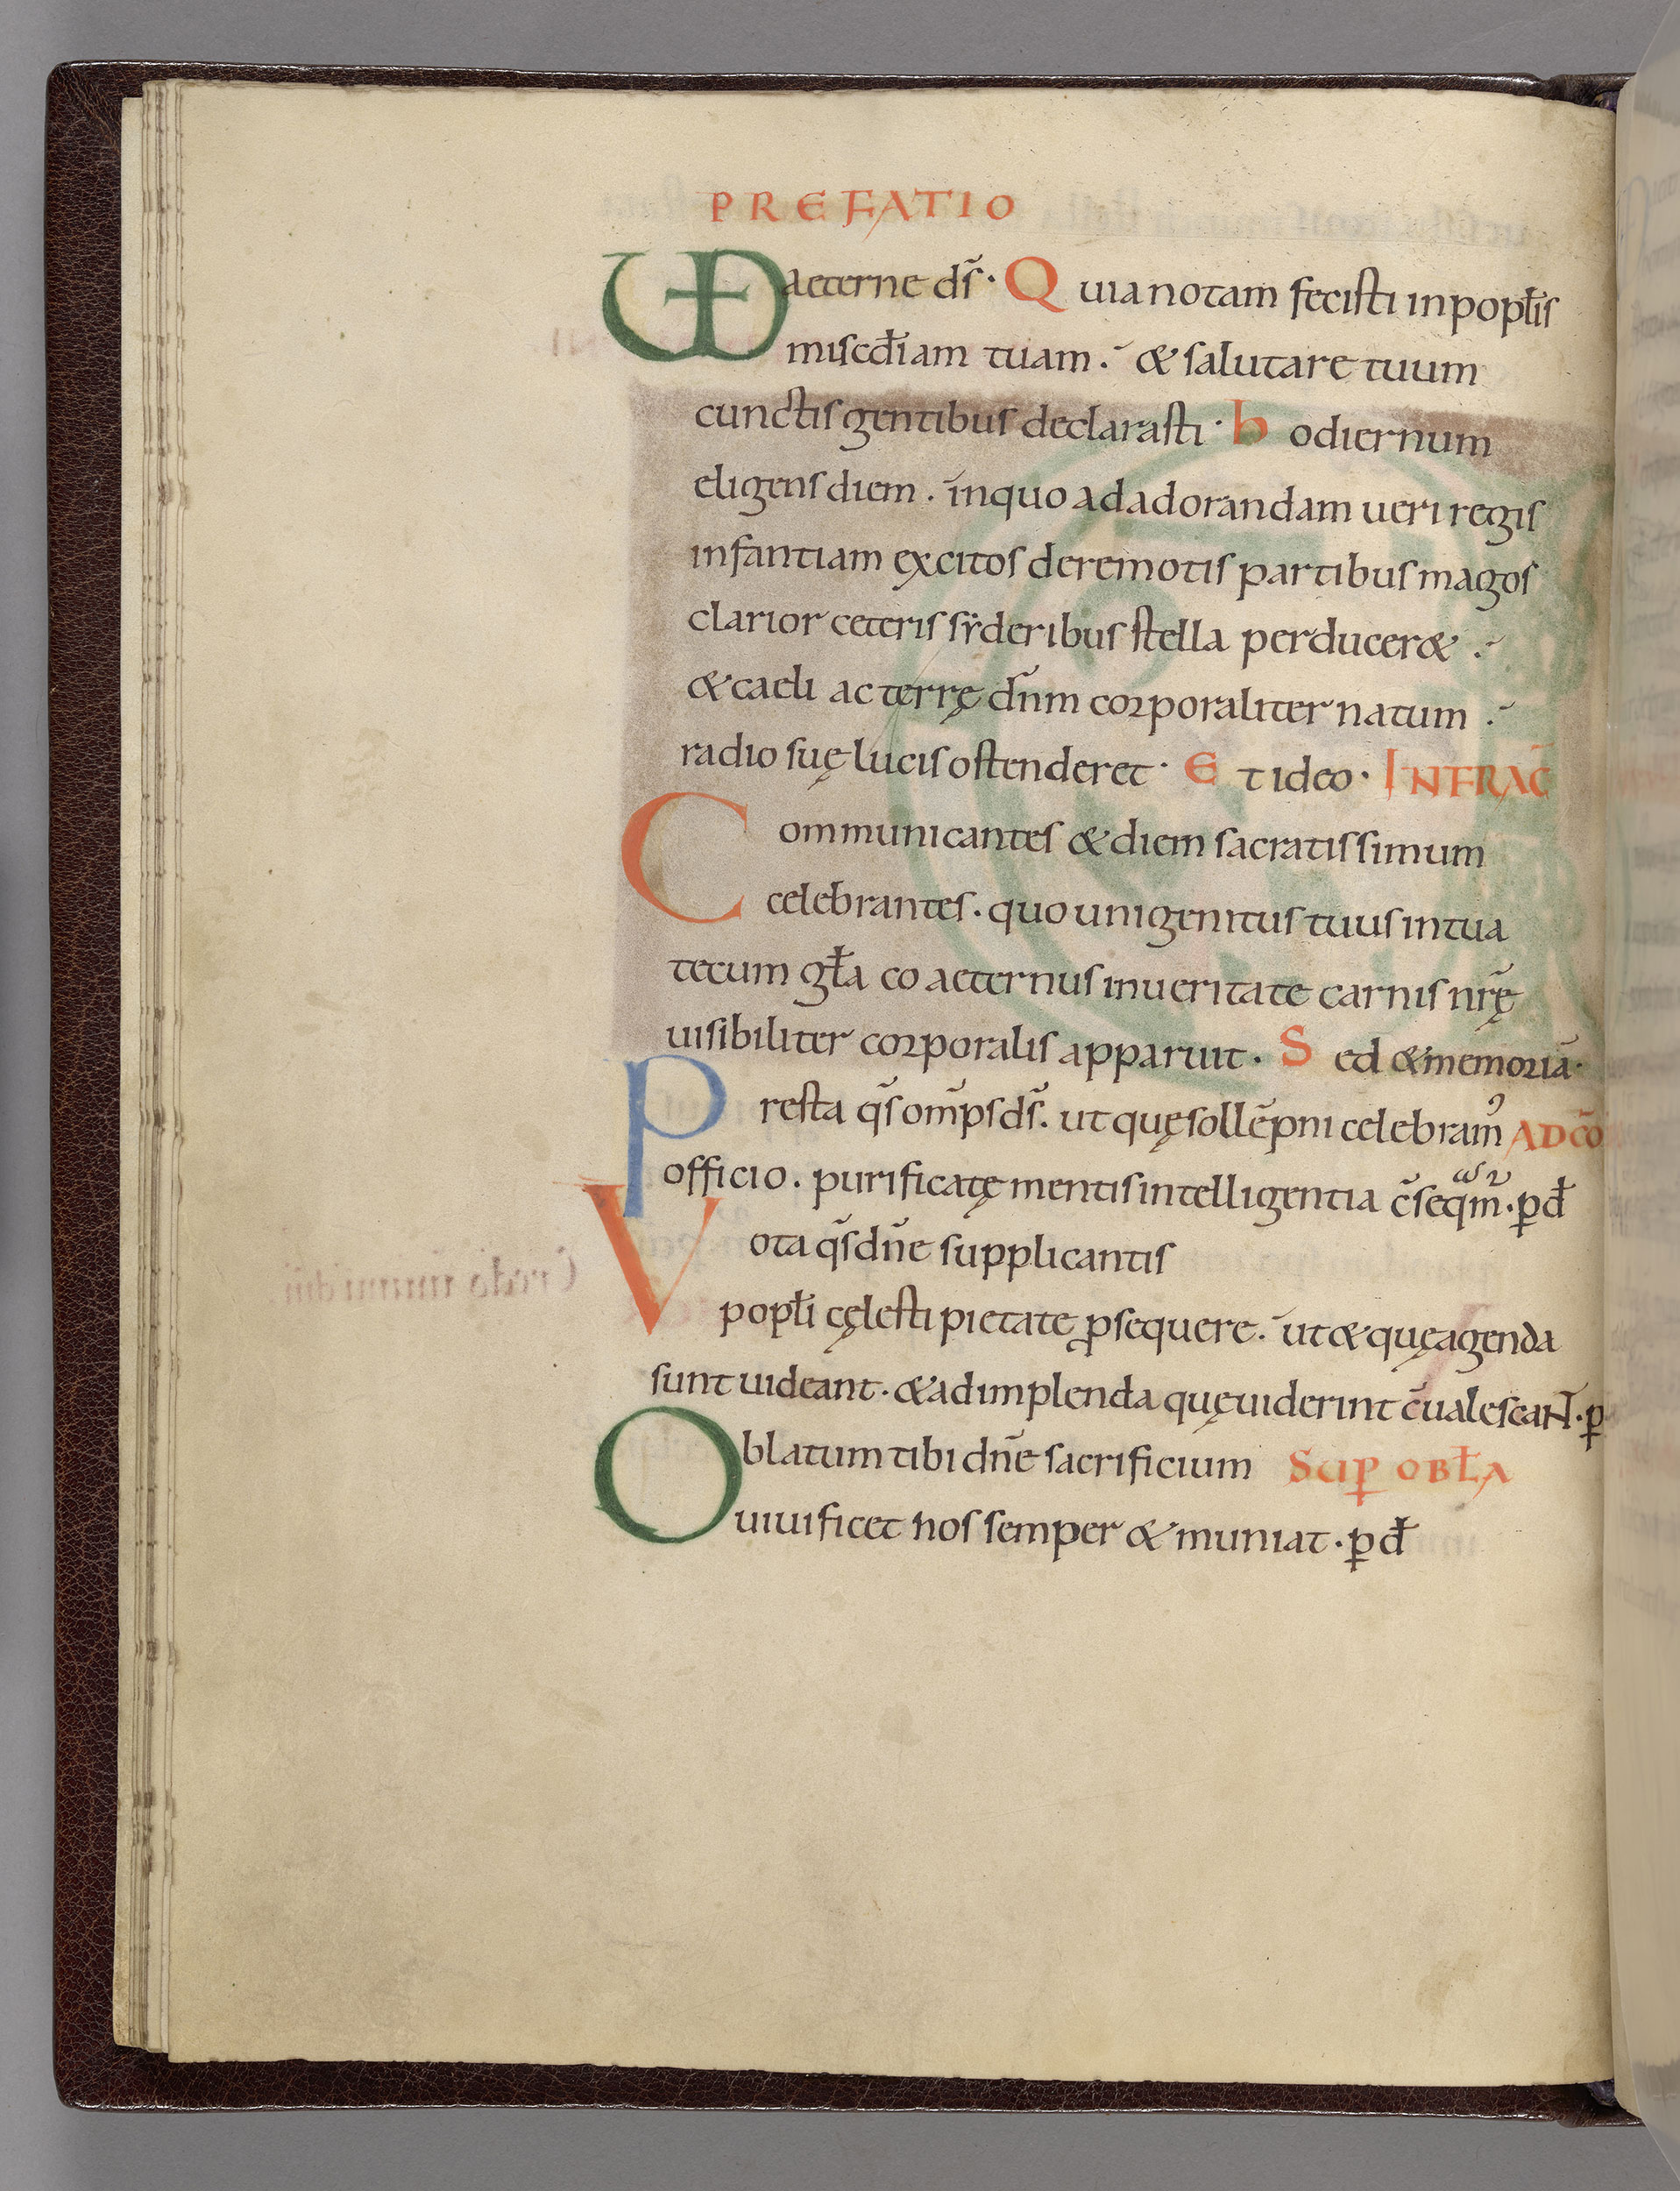 PREFATIO
VD aeterne ds̄· Quia notam fecisti in popl̄is
miscd̄iam tuam. & salutare tuum
cunctis gentibus declarasti· hodiernum
eligens diem. in quo ad adorandam ueri regis
infantiam excitos de remotis partibus magos
clarior ceteris sẏderibus stella perducer&.
& caeli ac terrę dn̄m corporaliter natum.
radio suę lucis ostenderet· Et ideo· INFRAC̄
Communicantes & diem sacratissimum
celebrantes. quo unigenitus tuus in tua
tecum gl̄a coaeternus in ueritate carnis nr̄ę
uisibiliter corporalis apparuit. Sed & memoriā·
Presta qs̄ om̄ps ds̄. ut quę sollēpni celebram᾿ AD CŌ
officio. purificatę mentis intelligentia c̄seqm̄· ꝑ d̄
Vota qs̄ dn̄e supplicantis
popl̄i cęlesti pietate ꝓsequere. ut & quę agenda
sunt uideant. & ad implenda quę uiderint c̄ualescaNT· ꝑ
Oblatum tibi dn̄e sacrificium SUꝐ OBL̄A
uiuificet nos semper & muniat· ꝑ d̄